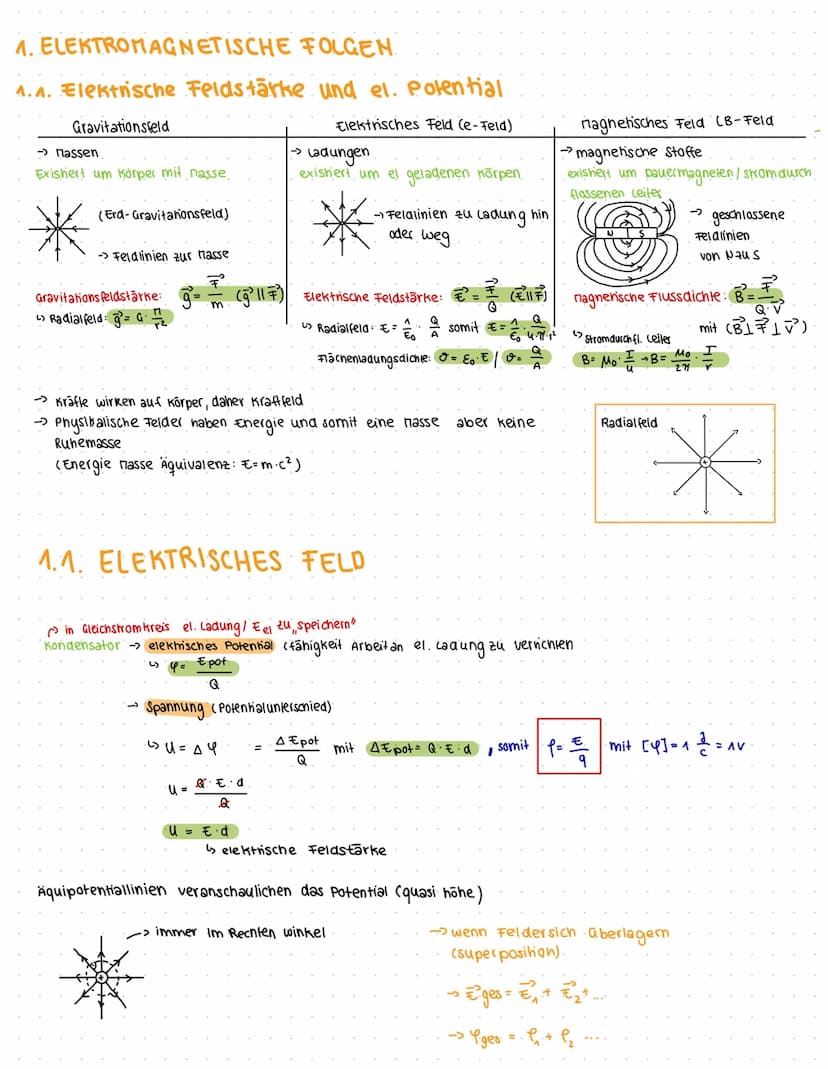 1. ELEKTROMAGNETISCHE FOLGEN
1.1. Elektrische Feldstärke und el. Potential
Gravitationsfeld
→ Massen
Existiert um Körper mit Masse
(Erd-Gravitationsfeld)
→ Feldlinien zur Masse
Gravitationsfeldstärke: g⃗ = F⃗/m (g⃗ || F⃗)
↳ Radialfeld: g⃗ = G · M/r²
Elektrisches Feld (e-Feld)
→ Ladungen
existiert um el geladenen Körpen
→ Feldlinien zu Ladung hin
oder weg
Elektrische Feldstärke: E⃗ = F⃗/Q (E⃗ || F⃗)
↳ Radialfeld: E = 1/ε₀ · Q/A somit E = 1/ε₀ · Q/4·π·r²
Flächenladungsdichte: σ = ε₀ · E / σ = Q/A
magnetisches Feld (B-Feld
→ magnetische Stoffe
existiert um Dauermagneten / stromdurch
flossenen Leiter
N S
→ geschlossene
Feldlinien
von N zu S
magnetische Flussdichte: B⃗ = F⃗/Q·V⃗
mit (B⃗ ⊥ F⃗ ⊥ V⃗)
↳ Stromdurchfl. Leiter
B = μ₀ · I/u → B = μ₀/2π · I/r
→ Kräfte wirken auf Körper, daher Kraftfeld
→ Physikalische Felder haben Energie und somit eine Masse aber keine
Ruhemasse
(Energie Masse Äquivalenz: E=m·c²)
Radialfeld
+
1.1. ELEKTRISCHES FELD
in Gleichstromkreis el. Ladung / E el zu „speichern"
Kondensator → elektrisches Potential (Fähigkeit Arbeit an el. Ladung zu verrichten
↳ φ = Epot/Q
→ Spannung (Potentialunterschied)
↳ U = Δφ = ΔEpot/Q mit ΔEpot = Q · E · d , somit φ = E/q mit [φ] = 1 J/C = 1V
U = Q · E · d/Q
U = E · d
↳ elektrische Feldstärke
Äquipotentiallinien veranschaulichen das Potential (quasi höhe)
→ immer im Rechten winkel
+
→ wenn Felder sich überlagern
(superposition)
→ E⃗ges = E⃗₁ + E⃗₂ + ...
→ φges = φ₁ + φ₂ ...